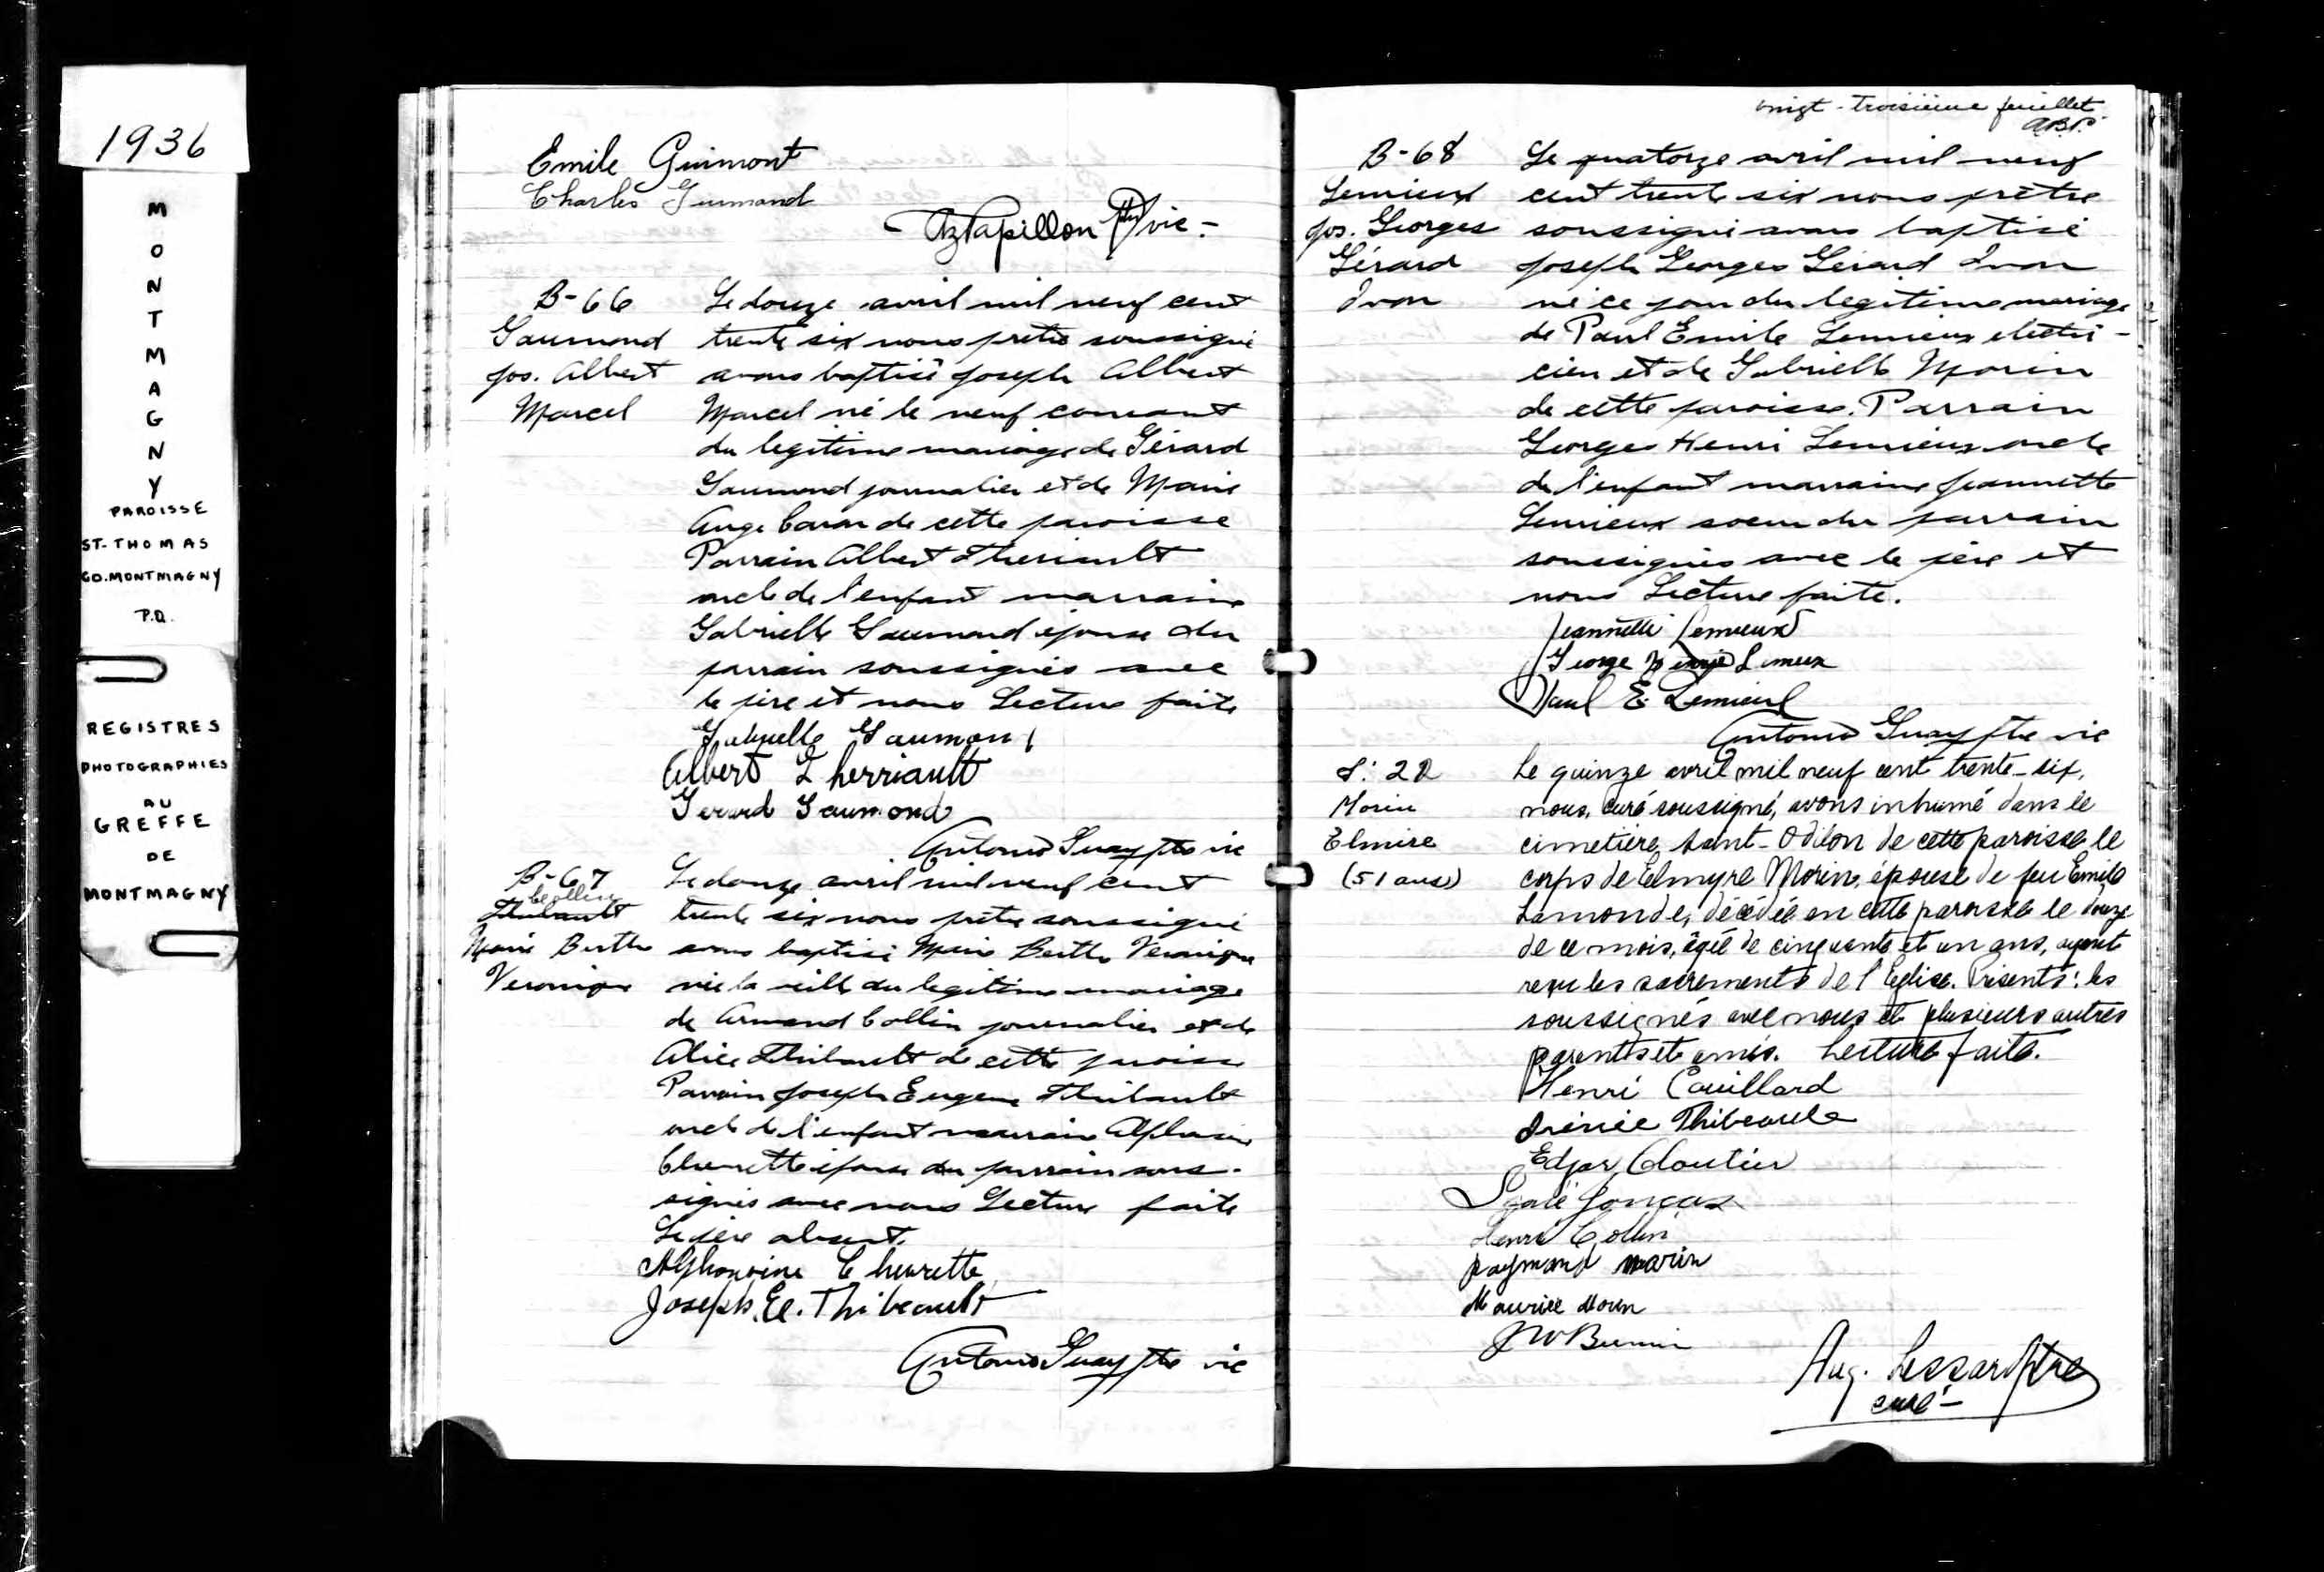 1936
MONTMAGNY
PAROISSE
ST-THOMAS
CO.MONTMAGNY
P.Q.
REGISTRES
PHOTOGRAPHIES
AU
GREFFE
DE
MONTMAGNY
Emile Guimont
Charles Guimond
Papillon Ptre vic.-
B-66
Gaumond
Jos. Albert
Marcel
Le douze avril mil neuf cent
trente six nous prêtre soussigné
avons baptisé Joseph Albert
Marcel né le neuf courant
du legitime mariage de Gérard
Gaumond journalier et de Marie
Ange Caron de cette paroisse
Parrain Albert Theriault
oncle de l'enfant marraine
Gabrielle Gaumond épouse du
parrain soussignés avec
le père et nous Lecture faite
Gabrielle Gaumond
Albert Therriault
Gerard Gaumond
Antonio Guay ptre vic
B-67
Collin
Thibault
Marie Berthe
Veronique
Le douze avril mil neuf cent
trente six nous prêtre soussigné
avons baptisé Marie Berthe Veronique
née la veille du legitime mariage
de Armand Collin journalier et de
Alice Thibault de cette paroisse
Parrain Joseph Eugene Thibault
oncle de l'enfant marraine Alphonsine
Chourette épouse du parrain sous-
signés avec nous Lecture faite
Le père absent.
Alphonsine Chourette
Joseph. E. Thibeault
Antonio Guay ptre vic
vingt-troisième feuillet
A.B.P.
B-68
Lemieux
Jos. Georges
Gérard
Ivon
Le quatorze avril mil neuf
cent trente six nous prêtre
soussigné avons baptisé
Joseph Georges Gérard Ivon
né ce jour du legitime mariage
de Paul Emile Lemieux electri-
cien et de Gabrielle Morin
de cette paroisse. Parrain
Georges Henri Lemieux oncle
de l'enfant marraine Jeannette
Lemieux soeur du parrain
soussignés avec le père et
nous Lecture faite.
Jeannette Lemieux
George Lemieux
Paul E. Lemieux
Antonio Guay ptre vic
S: 22
Morin
Elmire
(51 ans)
Le quinze avril mil neuf cent trente-six,
nous, curé soussigné, avons inhumé dans le
cimetière Saint-Odilon de cette paroisse le
corps de Elmyre Morin, épouse de feu Emile
Lamonde, décédée en cette paroisse le douze
de ce mois, âgée de cinquante et un ans, ayant
reçu les sacrements de l'Eglise. Présents: les
soussignés avec nous et plusieurs autres
parents et amis. Lecture faite.
Henri Couillard
Irénée Thibeault
Edgar Cloutier
Joncas
Henri Collin
Raymond Morin
Maurice Morin
Aug. Lessard ptre
curé-